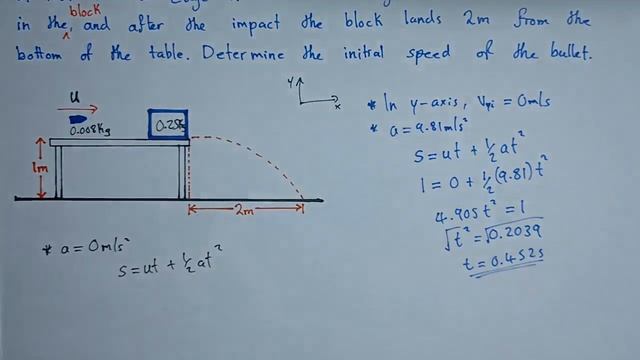 block
in the, and after the impact the block lands 2m from the
bottom of the table. Determine the initial speed of the bullet.
u
0.008Kg
0.25Kg
1m
2m
Y
x
* a = 0m/s²
s = ut + ½at²
* In y-axis, Vyi = 0m/s
* a = 9.81m/s²
s = ut + ½at²
1 = 0 + ½(9.81)t²
4.905t² = 1
√t² = √0.2039
t = 0.452s